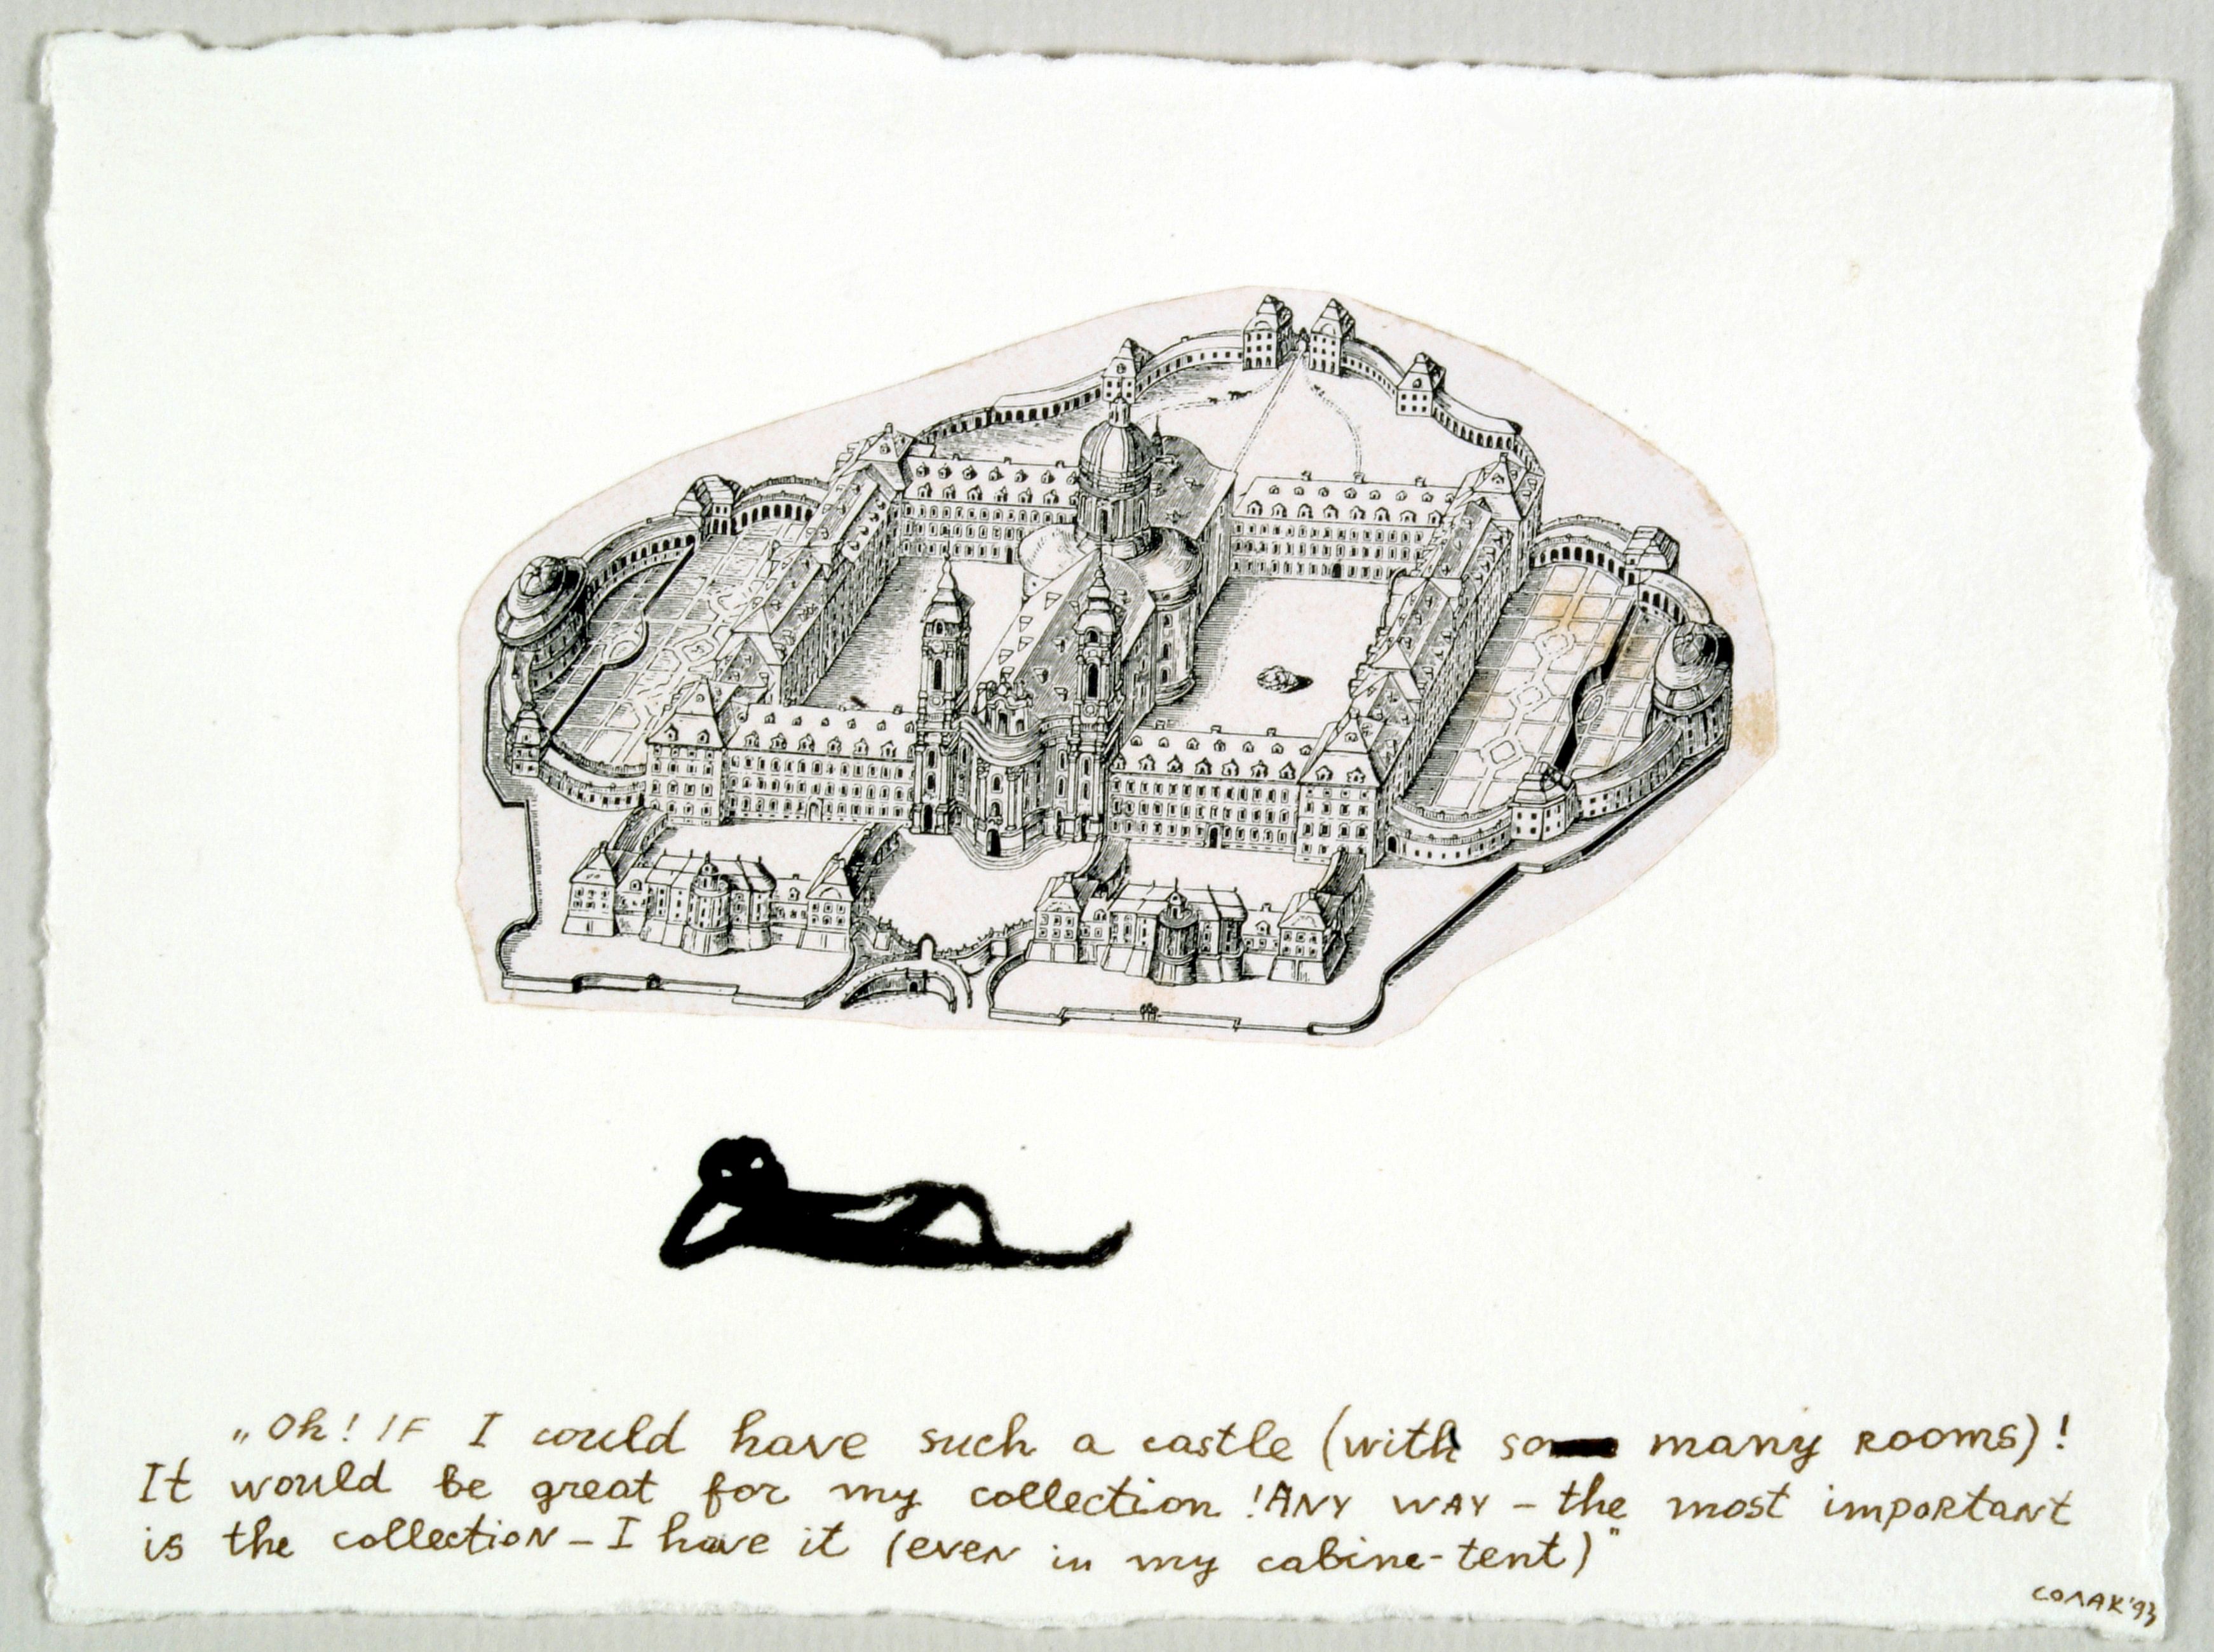 „Oh! IF I could have such a castle (with so many rooms)!
It would be great for my collection! ANY WAY – the most important
is the collection – I have it (even in my cabine-tent)"
СОЛАК'93